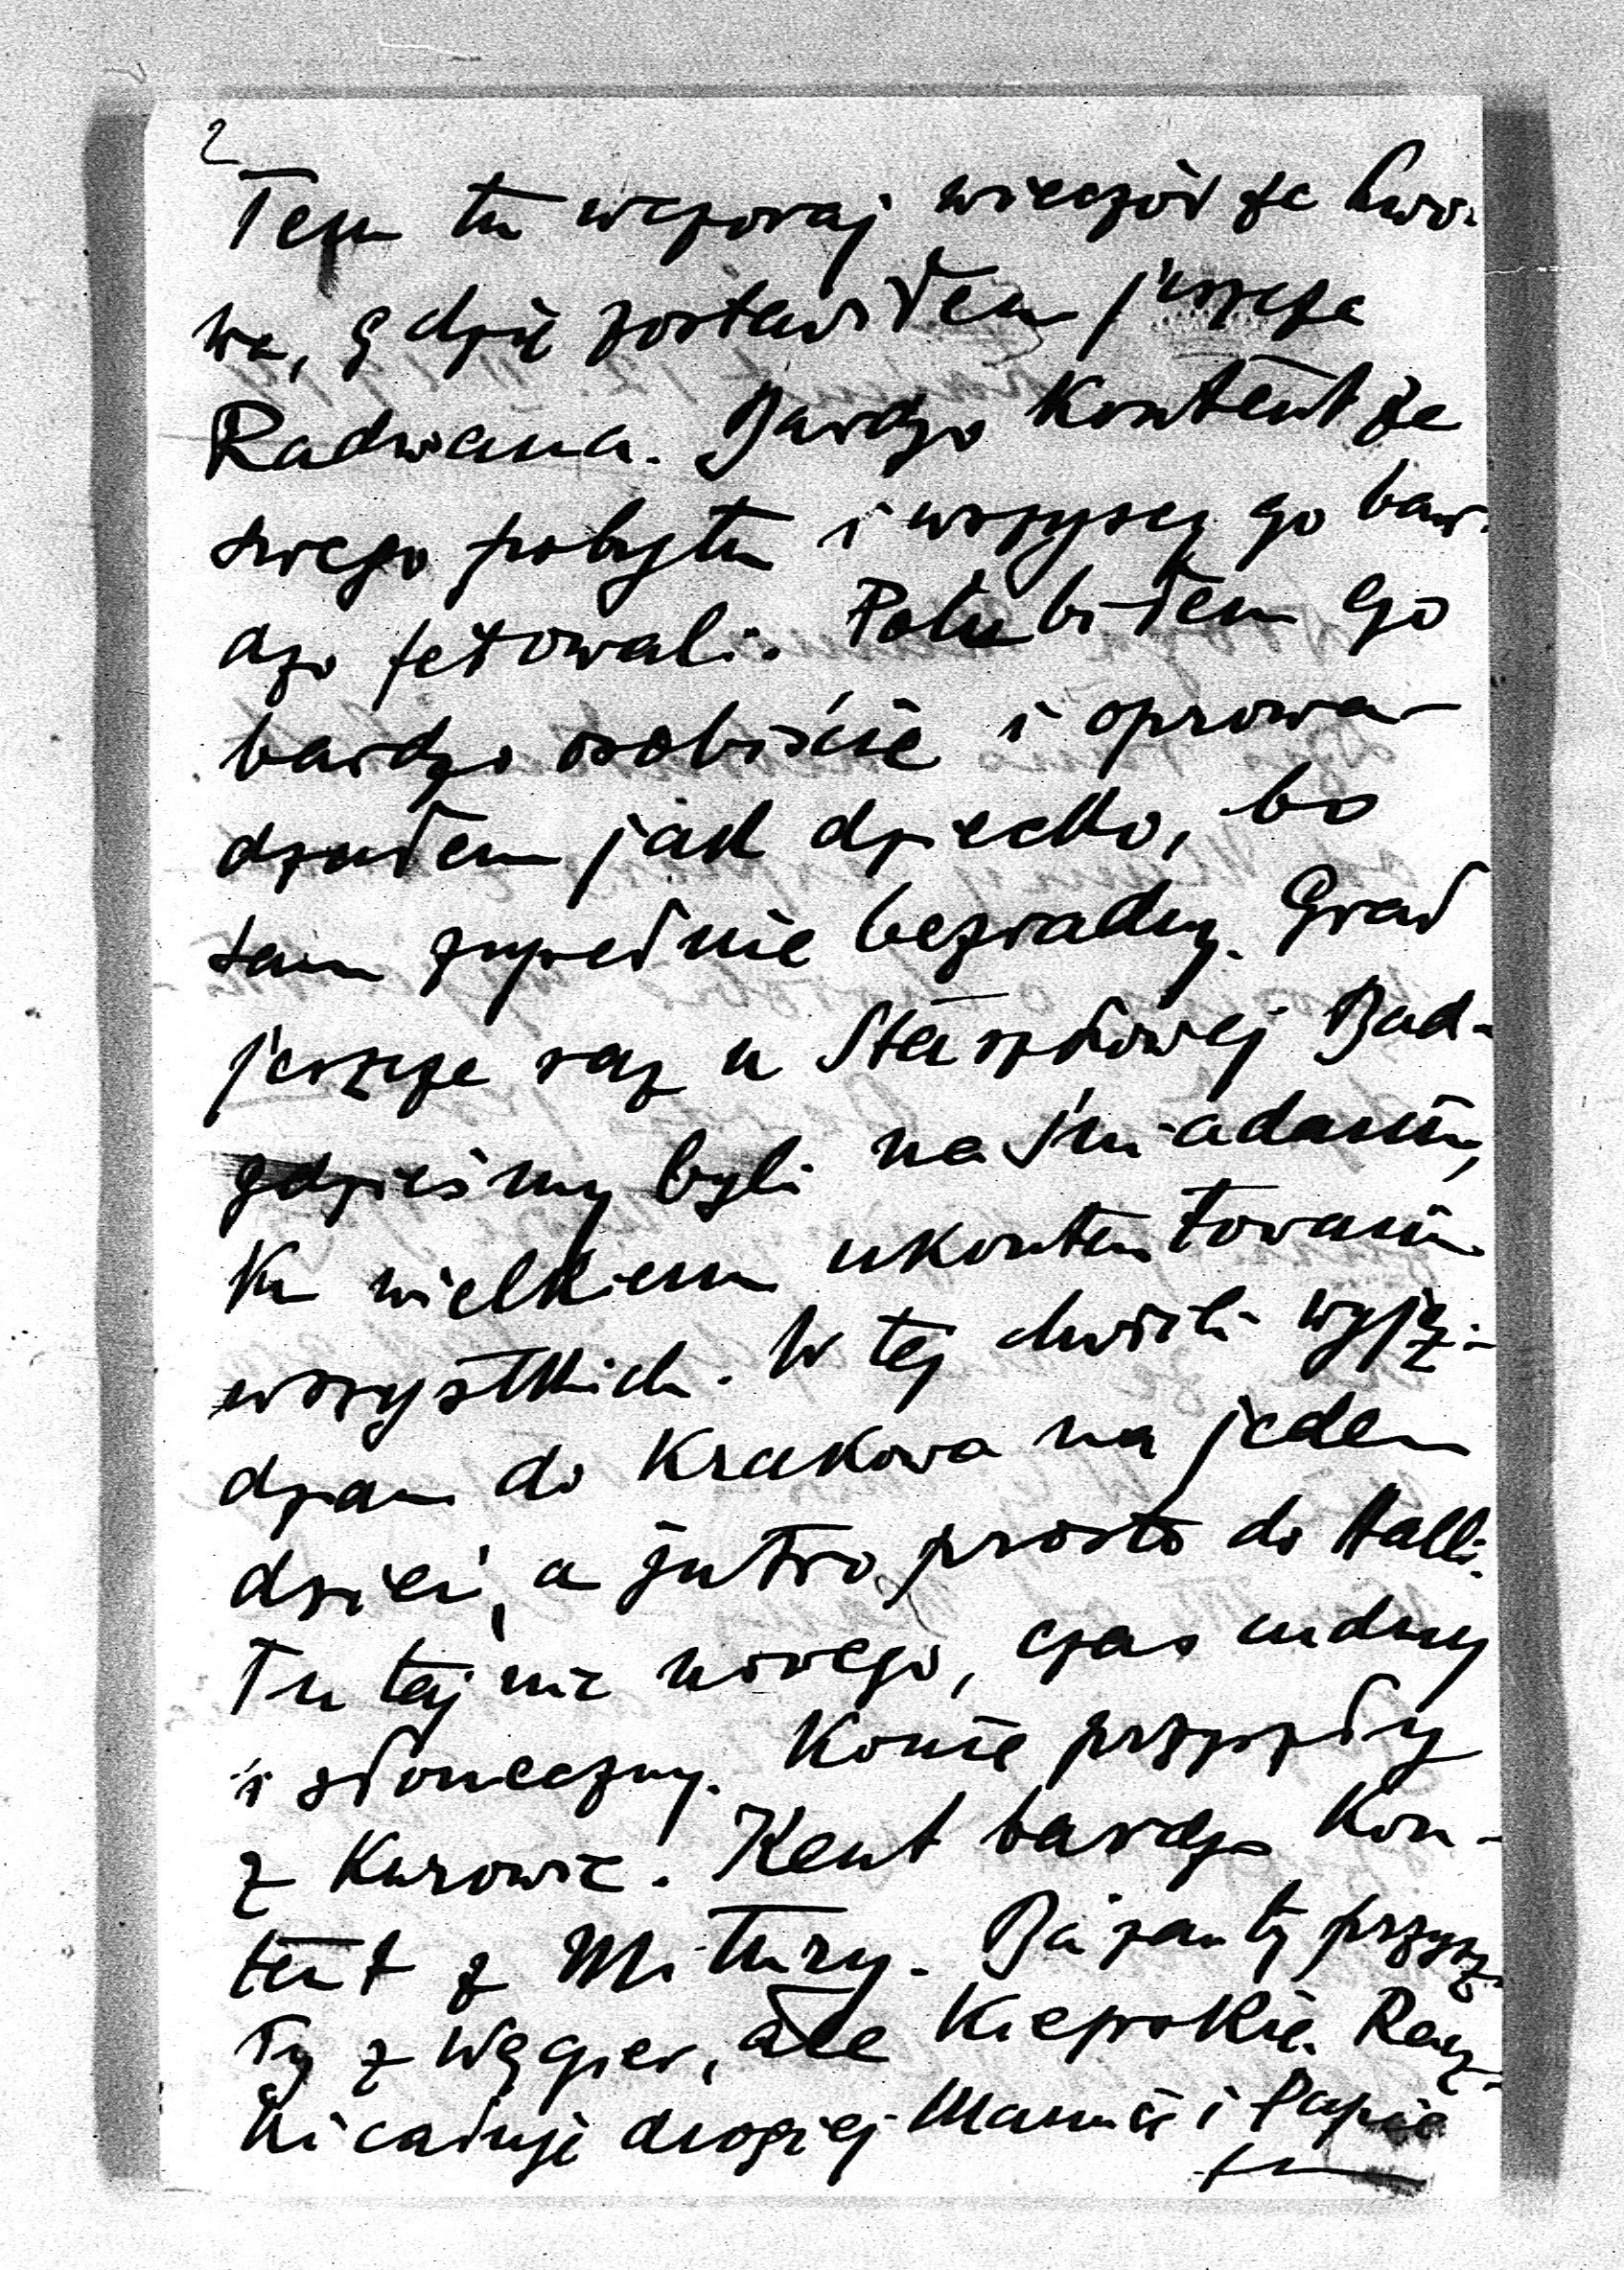 2
łem tu wczoraj wieczór ze Lwo-
wa, gdzie zostawiłem jeszcze
Radwana. Bardzo kontent ze
swego pobytu i wszyscy go bar-
dzo fetowali. Polubiłem go
bardzo osobiście i oprowa-
dzałem jak dziecko, bo
tam zupełnie bezradny. Grał
jeszcze raz u Stasiowej Bad.
gdzieśmy byli na śniadaniu,
ku wielkiem ukontentowaniu
wszystkich. W tej chwili wyjeż-
dżam do Krakowa na jeden
dzień, a jutro prosto do Halli.
Tutaj nic nowego, czas cudny
i słoneczny. Konie przyszły
z Kurowic. Kent bardzo kon-
tent z Mitury. Bażanty przysz-
ły z Węgier, ale kiepskie. Rącz-
ki całuję drogiej Mamusi i Papie